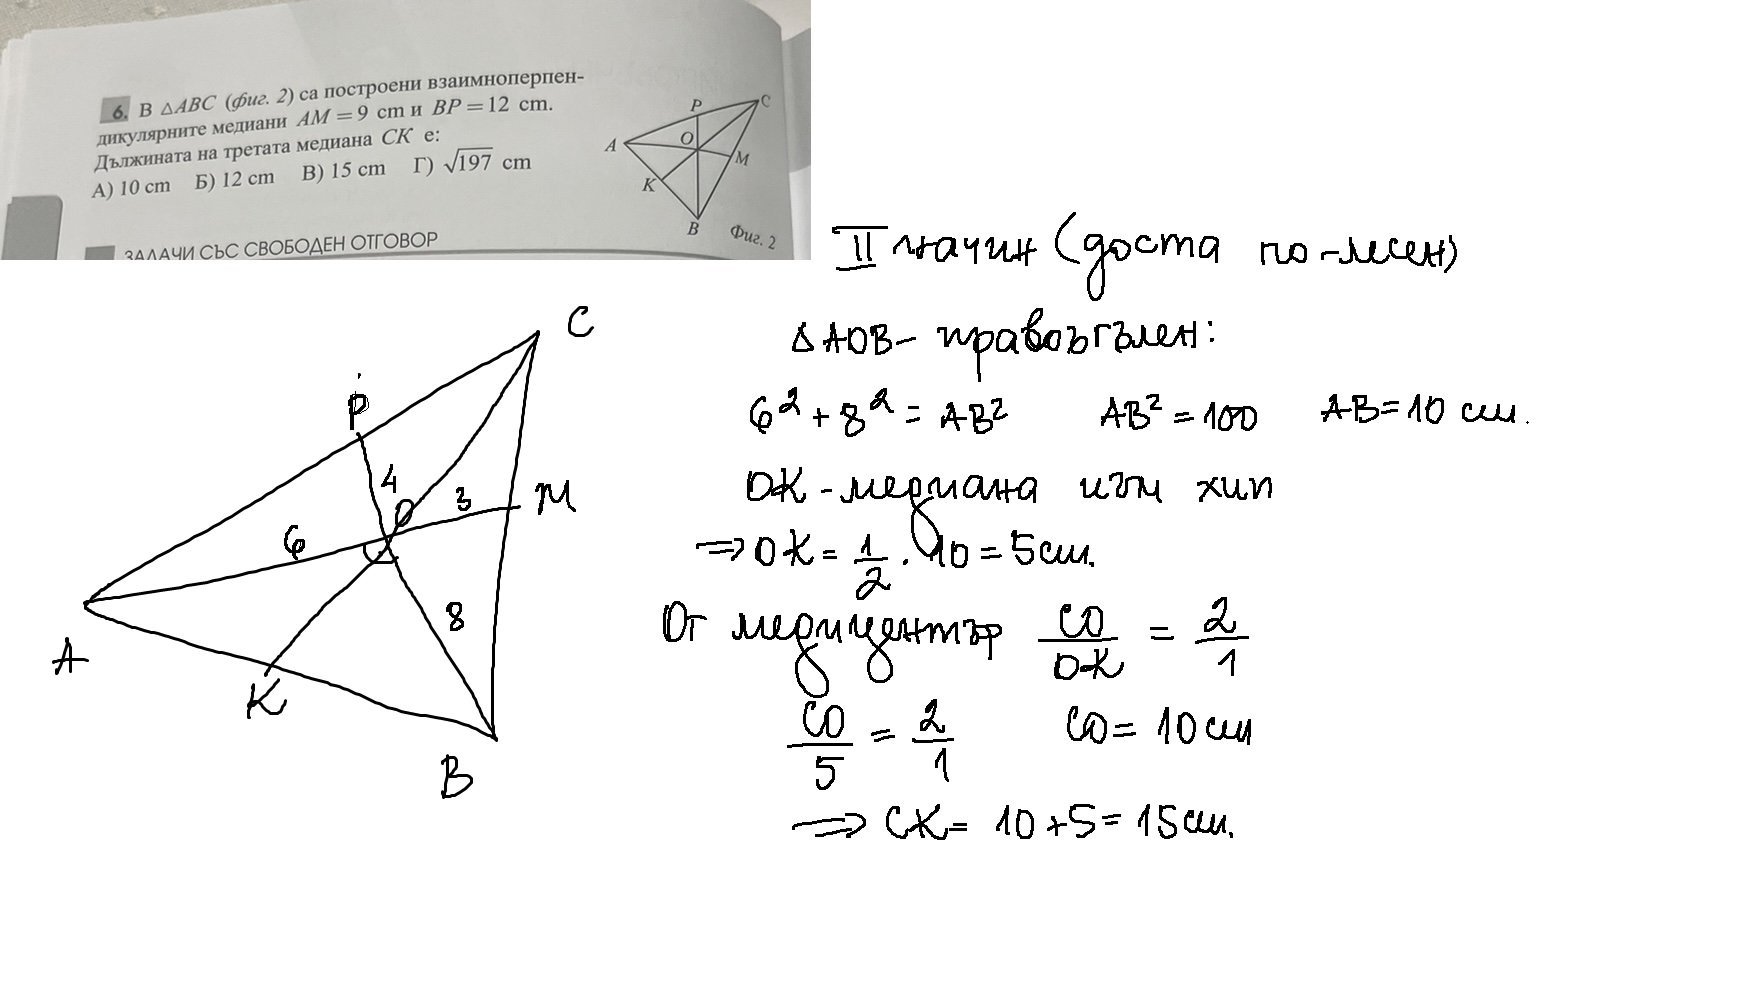 6. В △ABC (фиг. 2) са построени взаимноперпен-
дикулярните медиани AM = 9 cm и BP = 12 cm.
Дължината на третата медиана CK е:
А) 10 cm Б) 12 cm В) 15 cm Г) √197 cm
P C
A O M
K
B Фиг. 2
ЗАДАЧИ СЪС СВОБОДЕН ОТГОВОР
II начин (доста по-лесен)
△AOB – правоъгълен:
6² + 8² = AB² AB² = 100 AB = 10 см.
OK - медиана към хип
⇒ OK = 1/2 . 10 = 5 см.
От медицентър CO/OK = 2/1
CO/5 = 2/1 CO = 10 см
⇒ CK = 10 + 5 = 15 см.
C
P
4
O 3 M
6
8
A
K
B